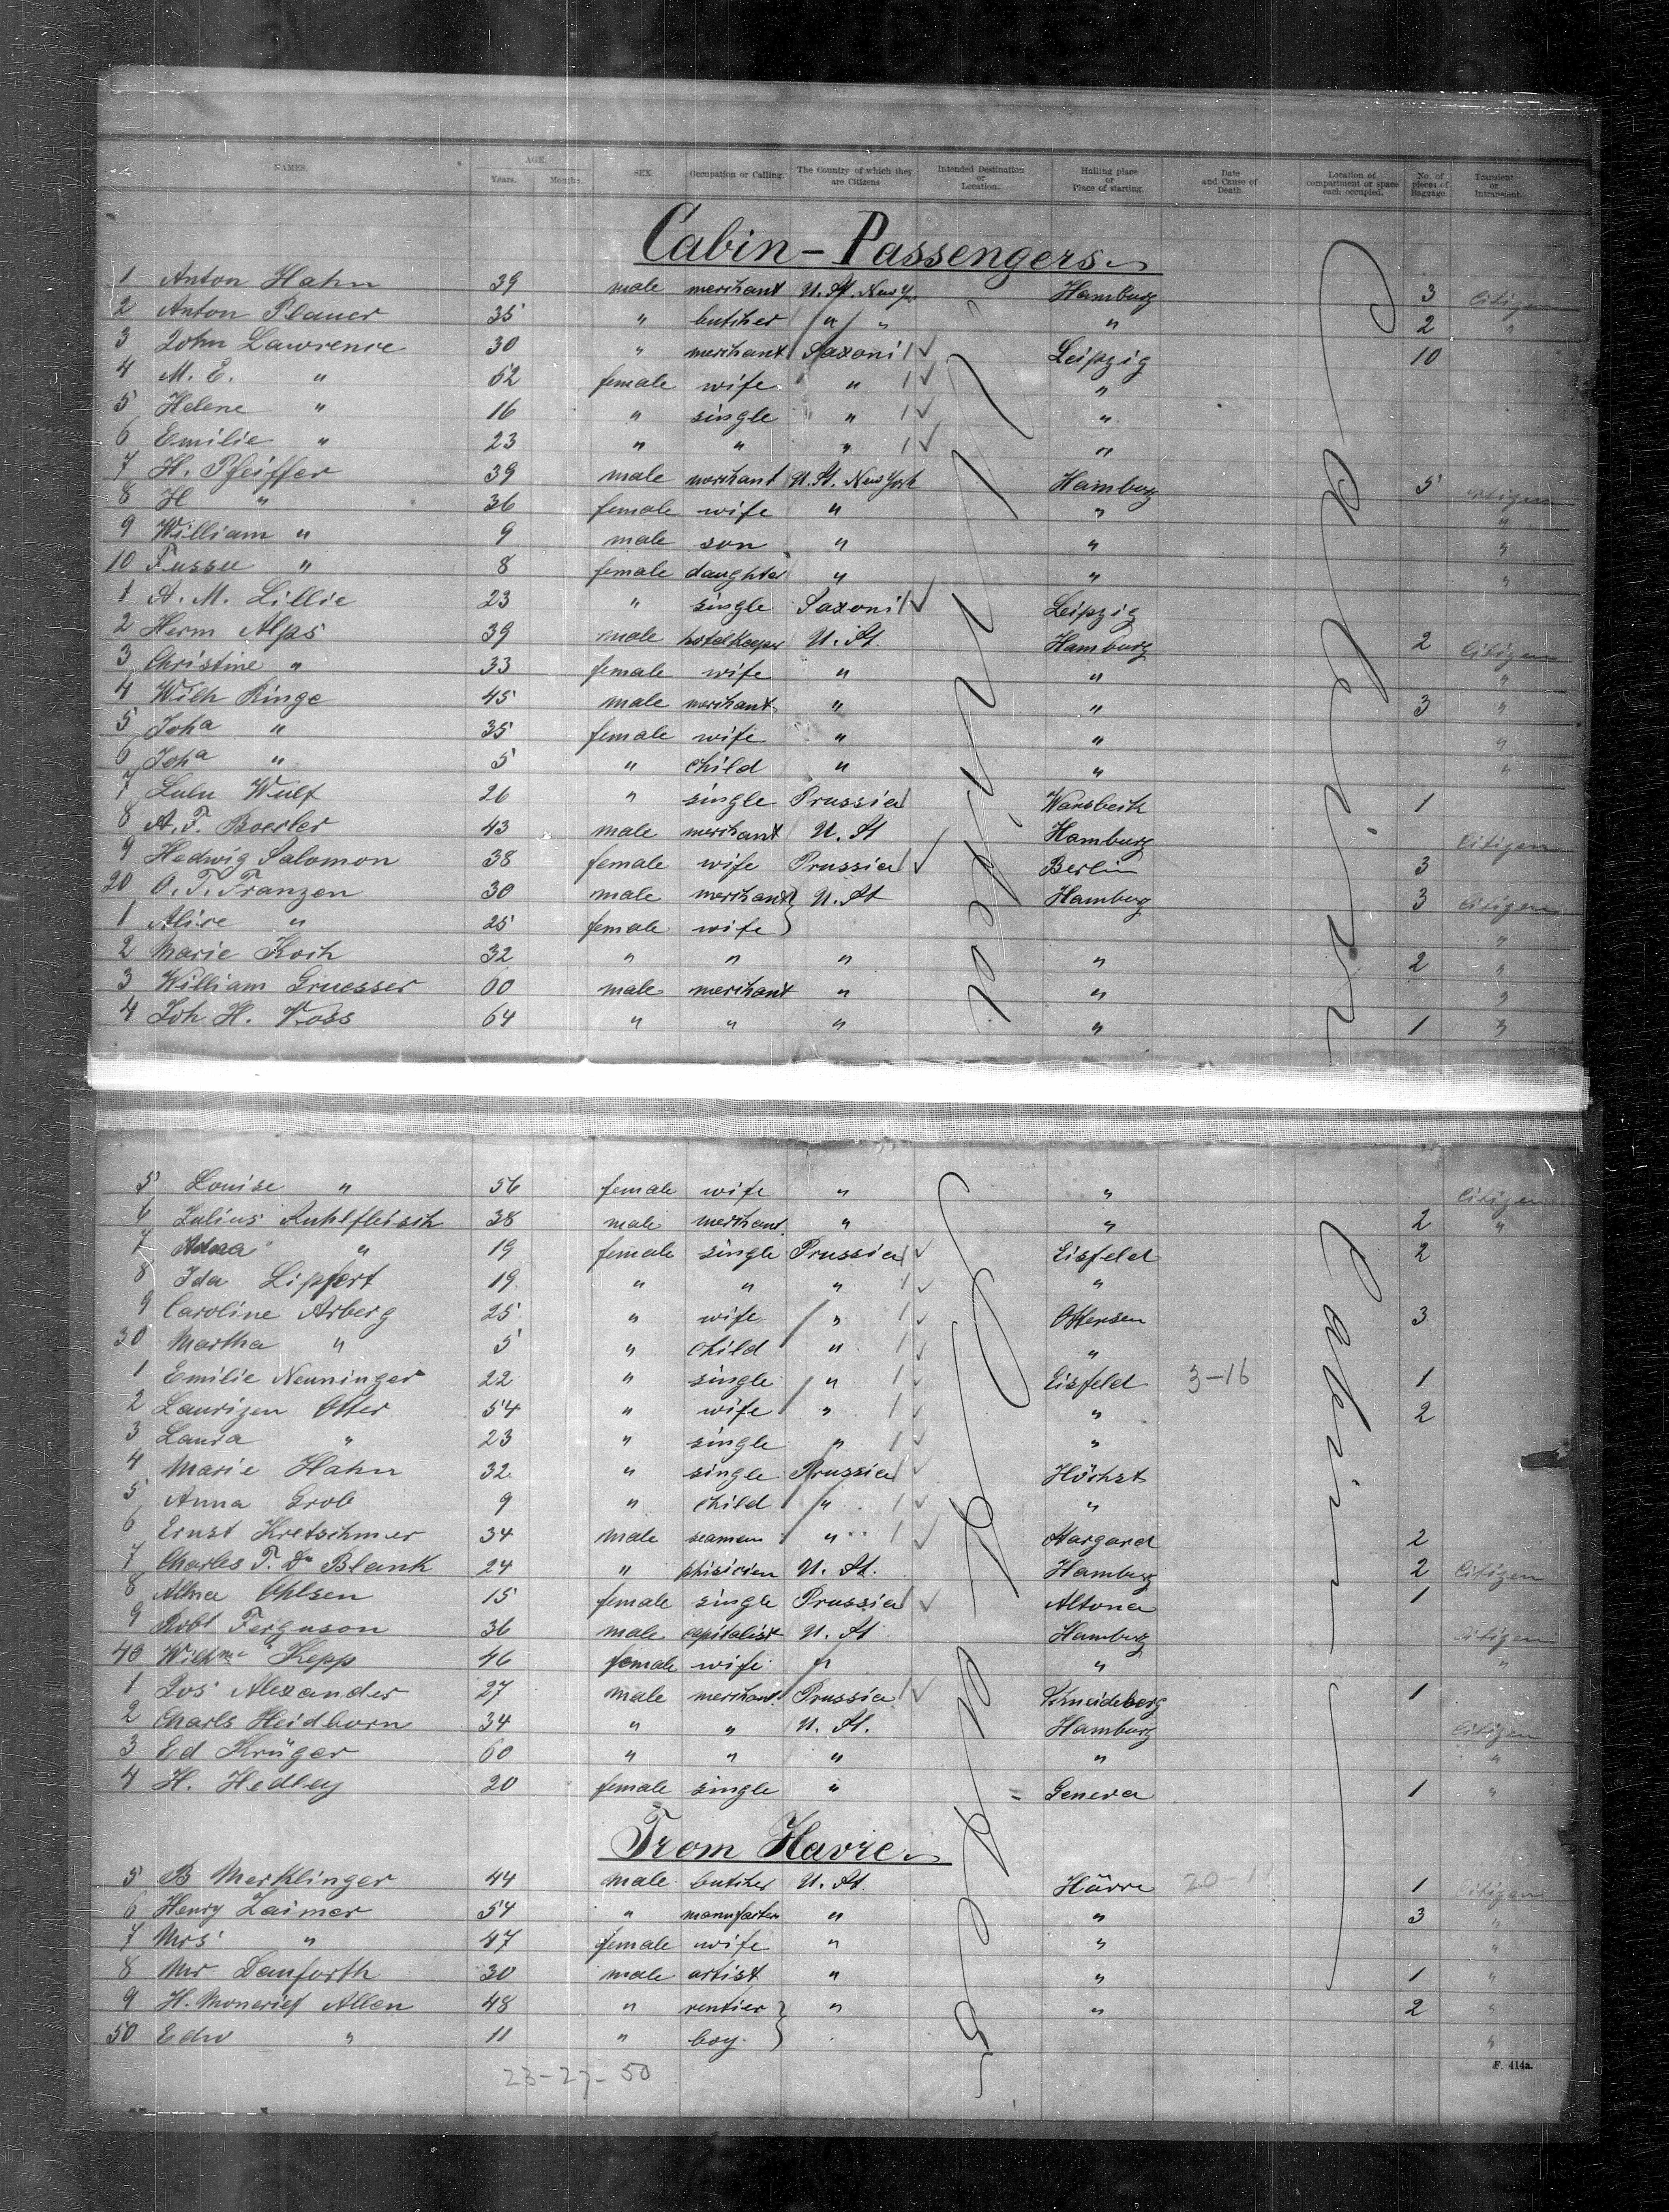 NAMES. AGE. Years. Months. SEX. Occupation or Calling. The Country of which they are Citizens Intended Destination or Location. Hailing place or Place of starting. Date and Cause of Death. Location of compartment or space each occupied. No. of pieces of Baggage. Transient or Intransient.
Cabin-Passengers
1 Anton Hahn 39 male merchant U. St. New Yor Hamburg 3 Citizen
2 Anton Plauer 35 " butcher " " " 2 "
3 John Lawrence 30 " merchant Saxoni Leipzig 10
4 M. E. " 52 female wife " "
5 Helene " 16 " single " "
6 Emilie " 23 " " " "
7 H. Pfeiffer 39 male merchant U. St. New York Hamburg 5 citizen
8 H " 36 female wife " " "
9 William " 9 male son " " "
10 Tussu " 8 female daughter " " "
1 A. M. Lillie 23 " single Saxoni Leipzig
2 Herm Alps 39 male hotelkeeper U. St. Hamburg 2 Citizen
3 Christine " 33 female wife " " "
4 Wilh Ringe 45 male merchant " " 3 "
5 Joha " 35 female wife " " "
6 Joha " 5 " child " " "
7 Lulu Wulf 26 " single Prussia Wansbeck 1
8 A. F. Boerler 43 male merchant U. St Hamburg Citizen
9 Hedwig Salomon 38 female wife Prussia Berlin 3
20 O. T. Franzen 30 male merchant U. St Hamburg 3 Citizen
1 Alice " 25 female wife "
2 Marie Koch 32 " " " " 2 "
3 William Gruesser 60 male merchant " " "
4 Joh H. Voss 64 " " " " 1 "
5 Louise " 56 female wife " " Citizen
6 Julius Kuhlfleisch 38 male merchant " " 2 "
7 " 19 female single Prussia Eisfeld 2
8 Ida Lippert 19 " " " "
9 Caroline Arberg 25 " wife " Ottensen 3
30 Martha " 5 " child " "
1 Emilie Nenninger 22 " single " Eisfeld 3-16 1
2 Laurizen Otter 54 " wife " " 2
3 Laura " 23 " single " "
4 Marie Hahn 32 " single Prussia Höchst
5 Anna Grob 9 " child " "
6 Ernst Kretschmer 34 male seaman " Stargard 2
7 Charles T. Dr Blank 24 " phisicien U. St. Hamburg 2 Citizen
8 Alma Ohlsen 15 female single Prussia Altona 1
9 Robt Ferguson 36 male capitalist U. St Hamburg Citizen
40 Wilhme Kepp 46 female wife " " "
1 Jos Alexander 27 male merchant Prussia Schneideberg 1
2 Charls Heidborn 34 " " U. St. Hamburg Citizen
3 Ed Krüger 60 " " " " "
4 H. Hedley 20 female single " = Geneva 1 "
From Havre
5 B Merklinger 44 male butcher U. St. Hävre 20-1 1 Citizen
6 Henry Laimer 54 " manufactur " " 3 "
7 Mrs " 47 female wife " " "
8 Mr Danforth 30 male artist " " 1 "
9 H. Moncrief Allen 48 " rentier " " 2 "
50 Edw " 11 " boy "
23-27-50
F. 414a.